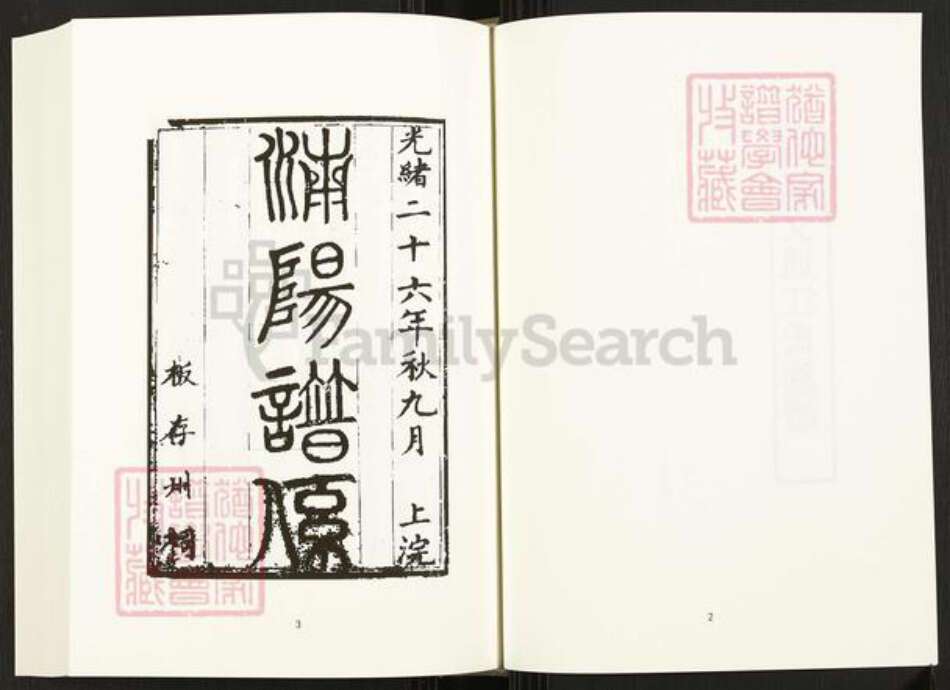 猶他家
譜學會
收藏
光緒二十六年秋九月 上浣
陽譜係
板存州
猶他家
譜學會
收藏
FamilySearch
3
2